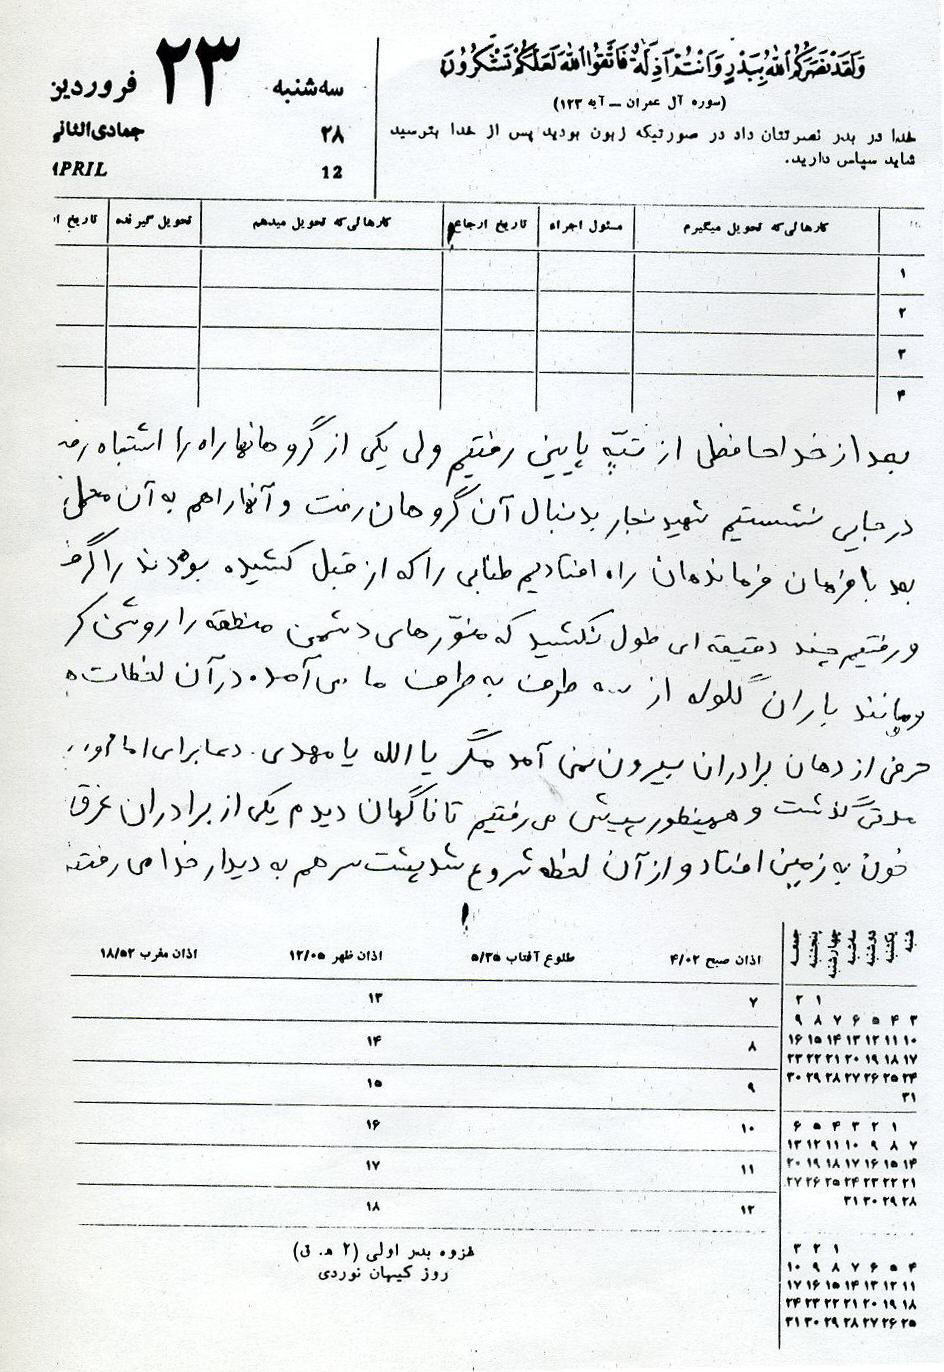 ۲۳ فروردین
سه شنبه
۲۸ جمادی الثانی
12 APRIL
وَلَقَدْ نَصَرَكُمُ اللهُ بِبَدْرٍ وَاَنْتُمْ اَذِلَّةٌ فَاتَّقُوا اللهَ لَعَلَّكُمْ تَشْكُرُونَ
(سوره آل عمران – آیه ۱۲۳)
خدا در بدر نصرتتان داد در صورتیکه زبون بودید پس از خدا بترسید
شاید سپاس دارید.
کارهائی که تحویل میگیرم مسئول اجراء تاریخ ارجاع کارهائی که تحویل میدهم تحویل گیرنده تاریخ
۱
۲
۳
۴
بعد از خداحافظی از تپّه پایین رفتیم ولی یکی از گروهانها راه را اشتباه
در جایی نشستیم شهید نجار بدنبال آن گروهان رفت و آنها را هم به آن
بعد با فرمان فرماندهان راه افتادیم طنابی را که از قبل کشیده بودند را
و رفتیم چند دقیقه ای طول نکشید که منوّرهای دشمن منطقه را روشن کر
و مانند باران گلوله از سه طرف به طرف ما می آمد. در آن لحظات
حرفی از دهان برادران بیرون نمی آمد مگر یا الله یا مهدی. دعا برای امام
مدتی گذشت و همینطور پیش می رفتیم تا ناگهان دیدم یکی از برادران غرق
خون به زمین افتاد و از آن لحظه شروع شد پشت سر هم به دیدار خدا می رفتند
!
اذان صبح ۴/۰۲ طلوع آفتاب ۵/۳۵ اذان ظهر ۱۲/۰۵ اذان مغرب ۱۸/۵۲
۷ ۱۳
۸ ۱۴
۹ ۱۵
۱۰ ۱۶
۱۱ ۱۷
۱۲ ۱۸
غزوه بدر اولی (۲ ه. ق)
روز کیهان نوردی
شنبه یکشنبه دوشنبه سه شنبه چهارشنبه پنجشنبه جمعه
۱ ۲
۳ ۴ ۵ ۶ ۷ ۸ ۹
۱۰ ۱۱ ۱۲ ۱۳ ۱۴ ۱۵ ۱۶
۱۷ ۱۸ ۱۹ ۲۰ ۲۱ ۲۲ ۲۳
۲۴ ۲۵ ۲۶ ۲۷ ۲۸ ۲۹ ۳۰
۳۱
۱ ۲ ۳ ۴ ۵ ۶
۷ ۸ ۹ ۱۰ ۱۱ ۱۲ ۱۳
۱۴ ۱۵ ۱۶ ۱۷ ۱۸ ۱۹ ۲۰
۲۱ ۲۲ ۲۳ ۲۴ ۲۵ ۲۶ ۲۷
۲۸ ۲۹ ۳۰ ۳۱
۱ ۲ ۳
۴ ۵ ۶ ۷ ۸ ۹ ۱۰
۱۱ ۱۲ ۱۳ ۱۴ ۱۵ ۱۶ ۱۷
۱۸ ۱۹ ۲۰ ۲۱ ۲۲ ۲۳ ۲۴
۲۵ ۲۶ ۲۷ ۲۸ ۲۹ ۳۰ ۳۱